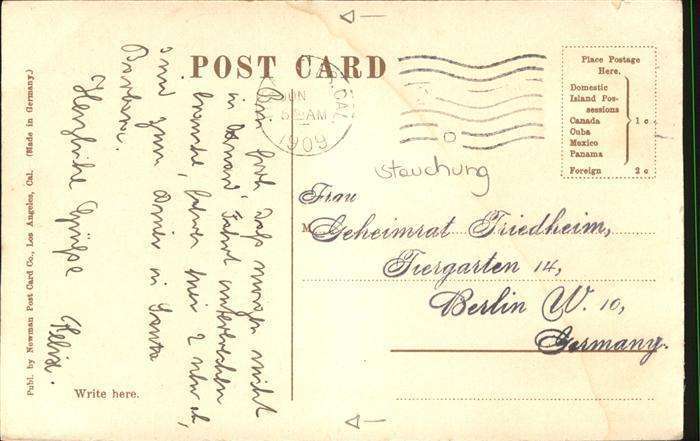 POST CARD
Place Postage
Here.
Domestic
Island Pos-
sessions
Canada
Cuba
Mexico
Panama
1 c
Foreign 2 c
JUN
5 AM
1909
CAL.
Stauchung
Frau
Geheimrat Friedheim,
Tiergarten 14,
Berlin W. 10,
Germany.
Bin froh dass morgen nicht
in Fahrt unterbrochen
2
und zum in Santa
Barbara.
Herzliche Grüsse
Felix.
Write here.
Publ. by Newman Post Card Co., Los Angeles, Cal. (Made in Germany.)